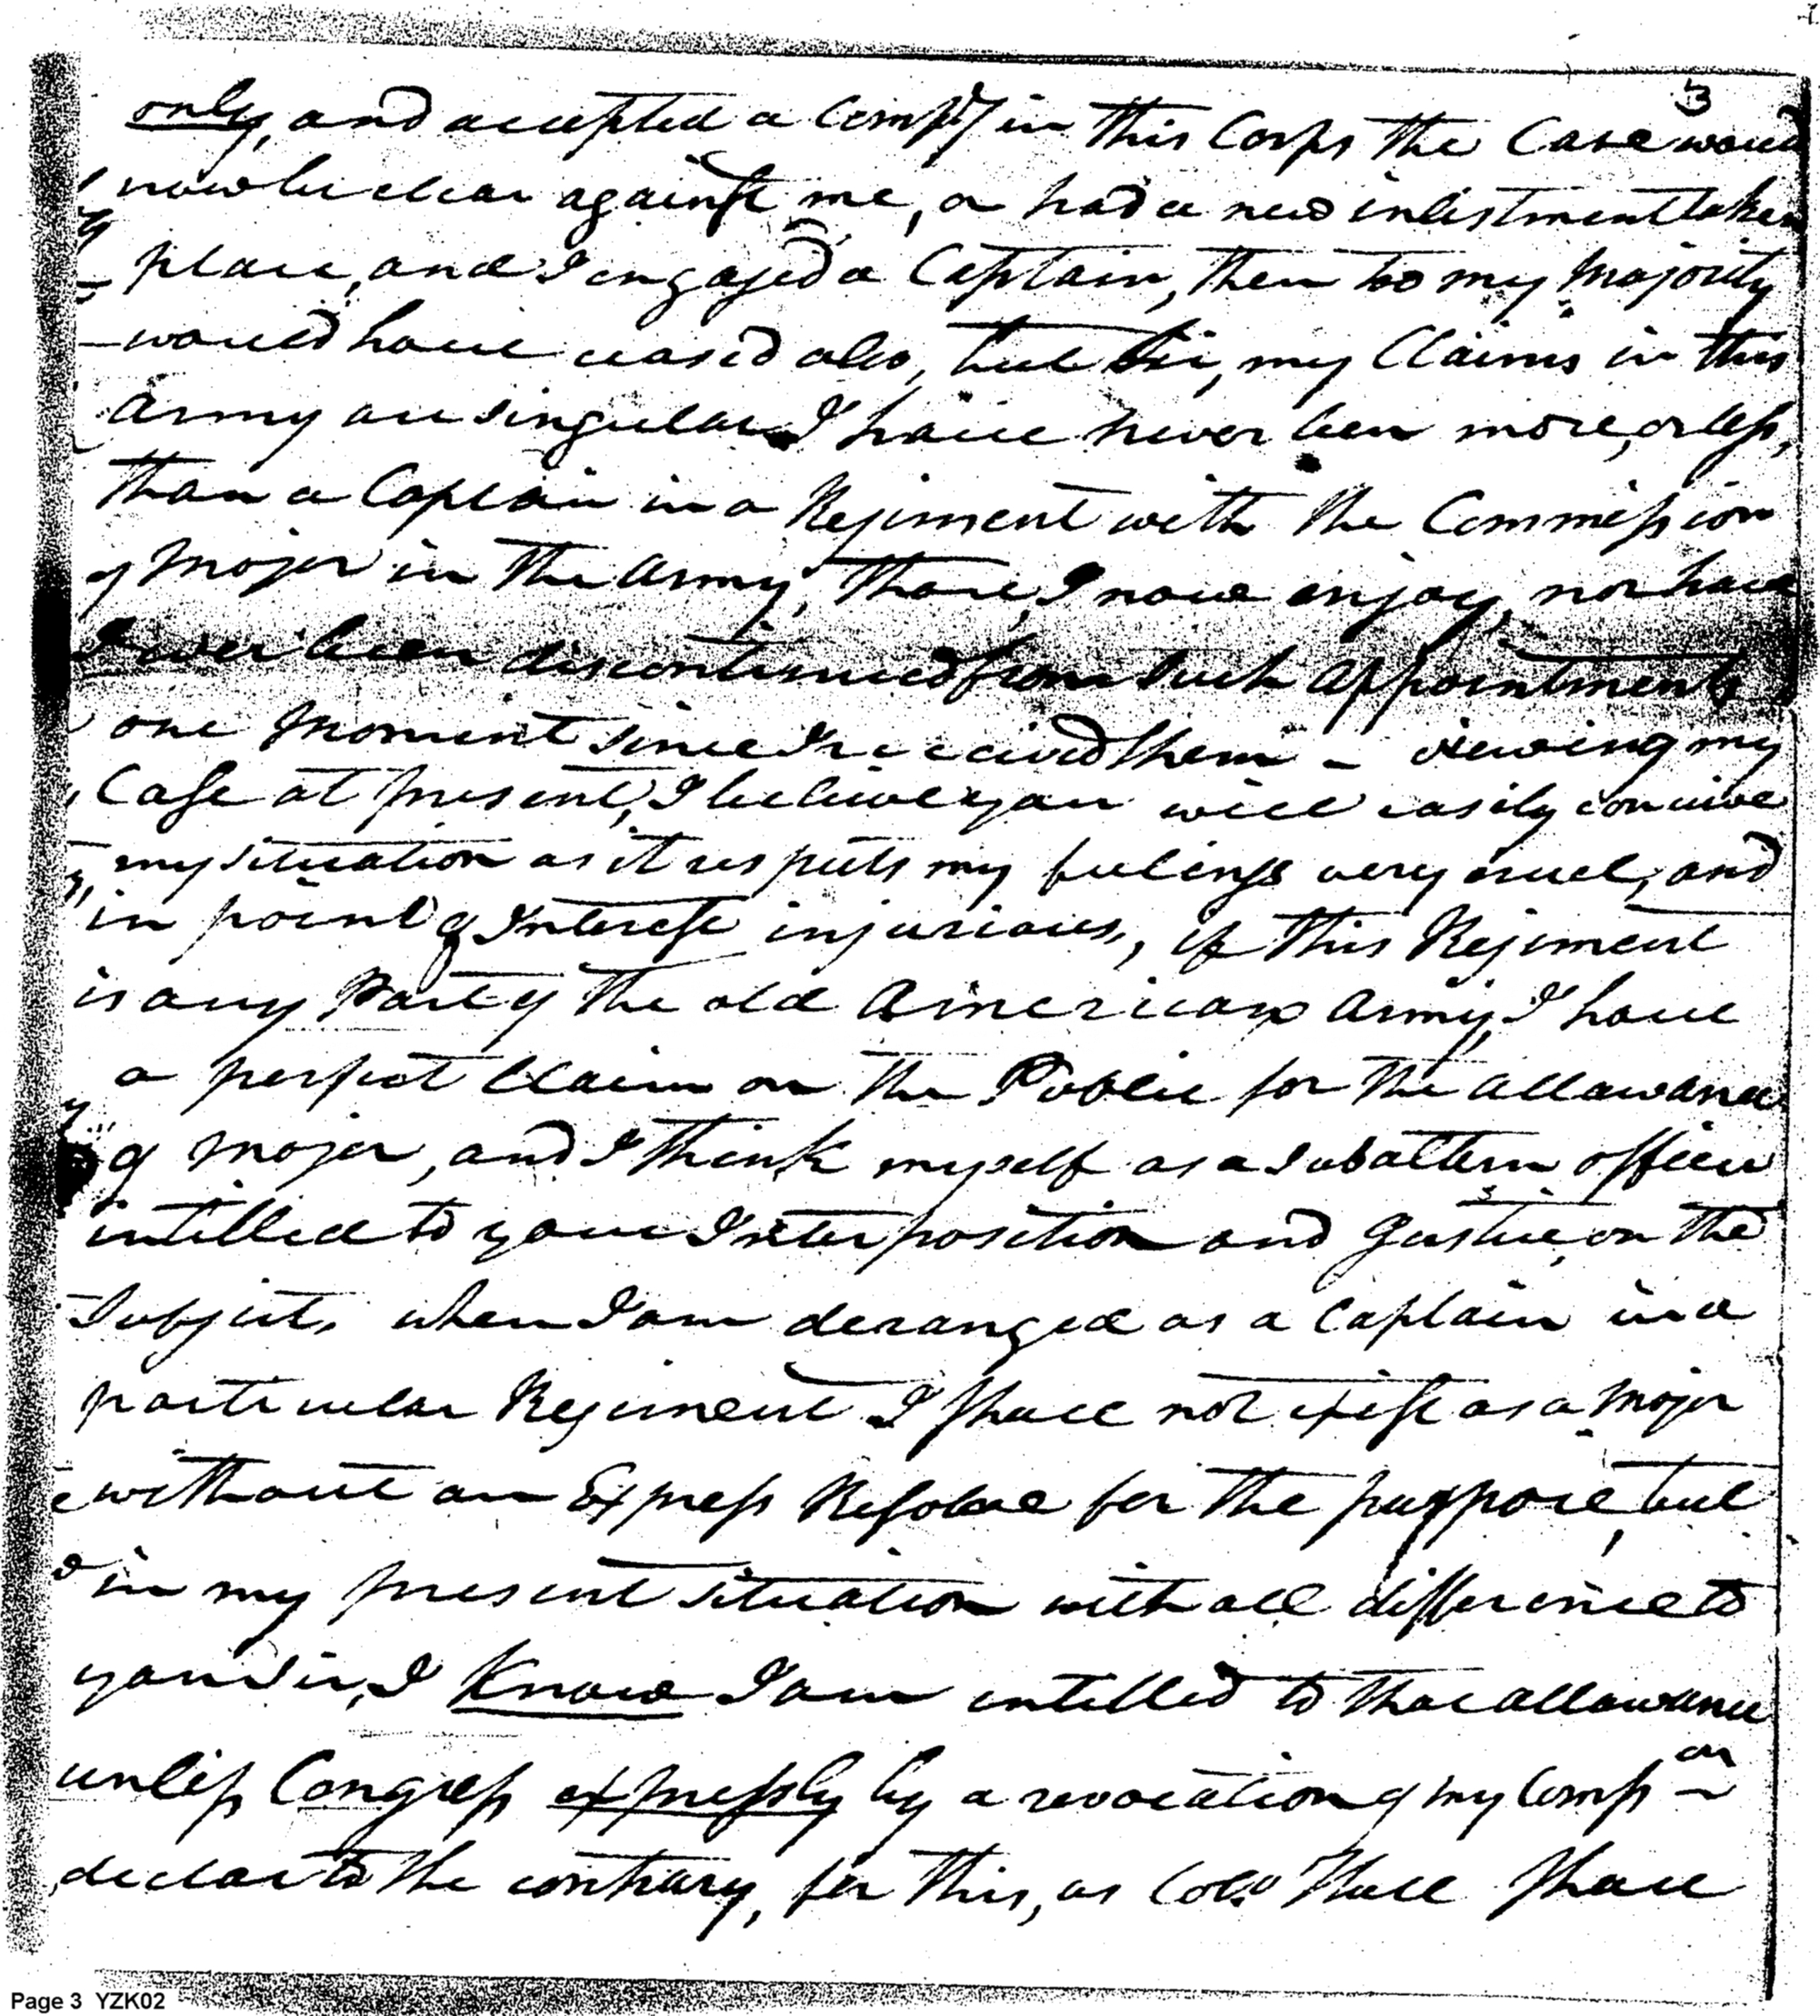 3
only, and accepted a Compy in this Corps the Case would
now be clear against me, or had a new inlistment taken
place, and I engaged a Captain, then too my Majority
would have ceased also, but Sir, my Claims in this
Army are singular I have never been more, or less,
than a Captain in a Regiment with the Commission
of Major in the Army, those, I now enjoy, nor have
I ever been discontinued from such appointments
one Moment since I received them - viewing my
Case at present, I believe you will easily conceive
my situation as it respects my feelings very cruel, and
in point of Interest injurious, if this Regiment
is any Part of the old American Army, I have
a perfect Claim on the Public for the allowance
of Major, and I think myself as a subaltern officer
intitled to your Interposition and Justice on the
Subject, when I am deranged as a Captain in a
particular Regiment I shall not exist as a Major
without an Express Resolve for the purpose, but
in my present situation with all difference to
you Sir, I Know I am intitled to those allowances
unless Congress expressly by a revocation of my Comssion
declare to the contrary, for this, as Colo Hull shall
Page 3 YZK02